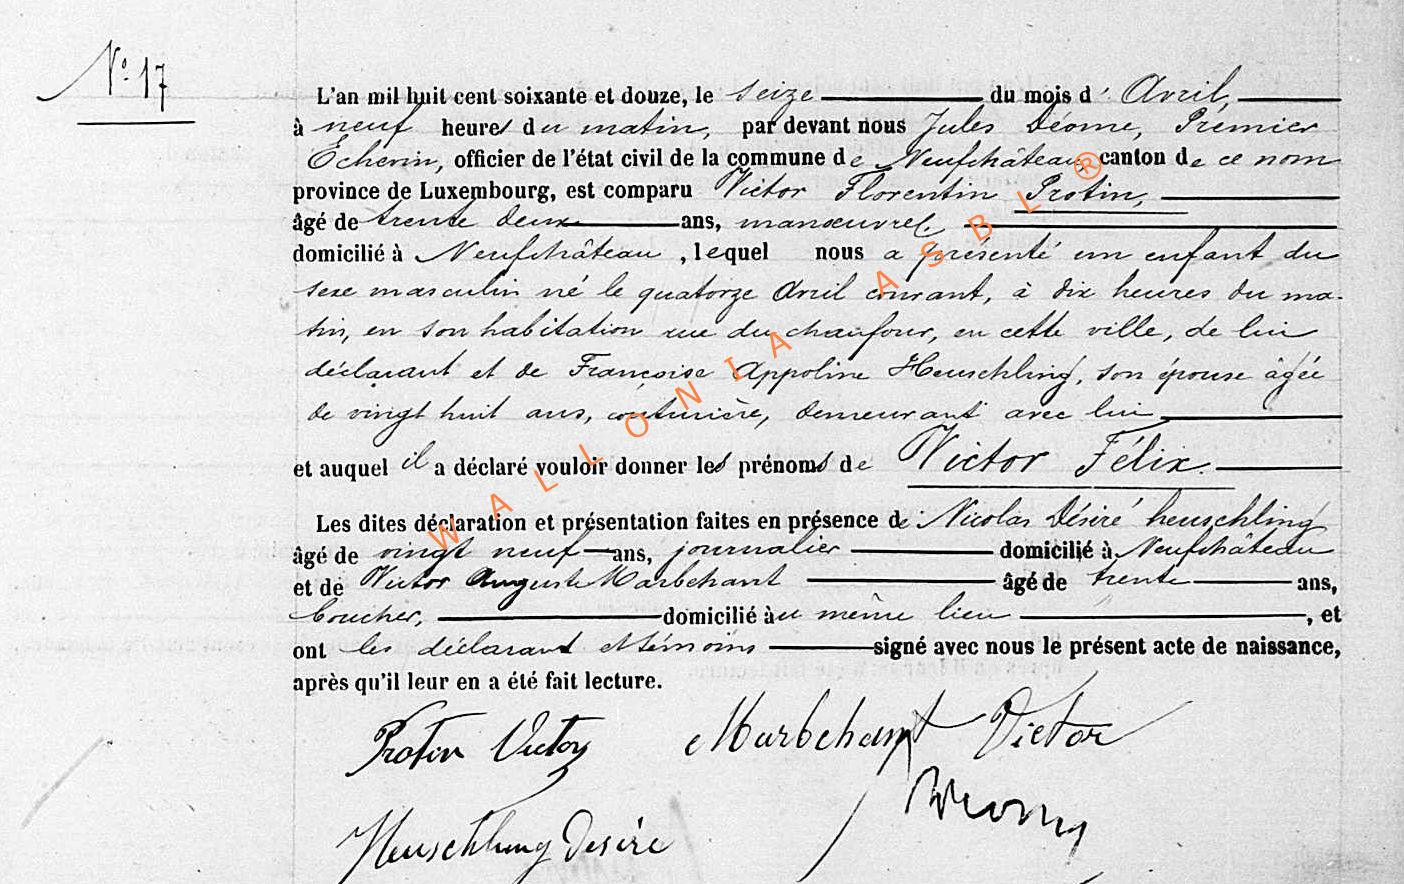 N° 17
L'an mil huit cent soixante et douze, le seize du mois d'Avril,
à neuf heures du matin, par devant nous Jules Déome, Premier
Echevin, officier de l'état civil de la commune de Neufchâteau, canton de ce nom
province de Luxembourg, est comparu Victor Florentin Protin,
âgé de trente deux ans, manœuvre,
domicilié à Neufchâteau, lequel nous a présenté un enfant du
sexe masculin né le quatorze Avril courant, à dix heures du ma-
tin, en son habitation rue du chaufour, en cette ville, de lui
déclarant et de Françoise Appoline Heuschling, son épouse âgée
de vingt huit ans, couturière, demeurant avec lui
et auquel il a déclaré vouloir donner les prénoms de Victor Félix.
Les dites déclaration et présentation faites en présence de Nicolas Désiré heuschling
âgé de vingt neuf ans, journalier domicilié à Neufchâteau
et de Victor Auguste Marbehant âgé de trente ans,
boucher, domicilié au même lieu, et
ont les déclarant et témoins signé avec nous le présent acte de naissance,
après qu'il leur en a été fait lecture.
Protin Victor Marbehant Victor
Heuschling Désiré
WALLONIA ASBL ®